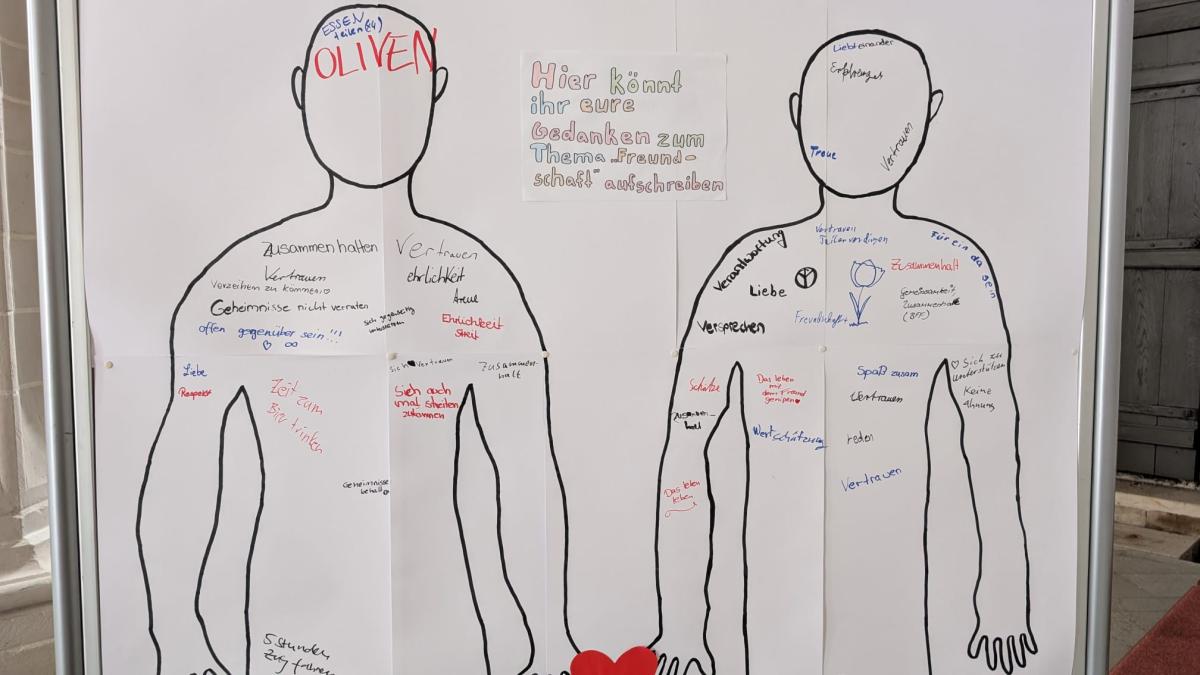 ESSEN
teilen (24)
OLIVEN
Hier könnt
ihr eure
Gedanken zum
Thema „Freund-
schaft" aufschreiben
Zusammenhalten
Vertrauen
Verzeihen zu können
Geheimnisse nicht verraten
offen gegenüber sein !!!
∞
Vertrauen
ehrlichkeit
treue
Ehrlichkeit
streit
sich gegenseitig
Liebe
Respekt
Zeit zum
Bier trinken
Sich Vertrauen
Sich auch
mal streiten
zu können
Zusammen-
halt
Geheimnisse
5 Stunden
Zug fahren
Treue
Vertrauen
Verantwortung
Liebe
Versprechen
Vertrauen
Freundschaft
Für ein da sein
Zusammenhalt
Das leben
mit
dem Freund
genießen
Zusammen-
halt
Wertschätzung
Das leben
leben
Spaß zusam
Vertrauen
reden
Vertrauen
Sich zu
unterstützen
Keine
Ahnung